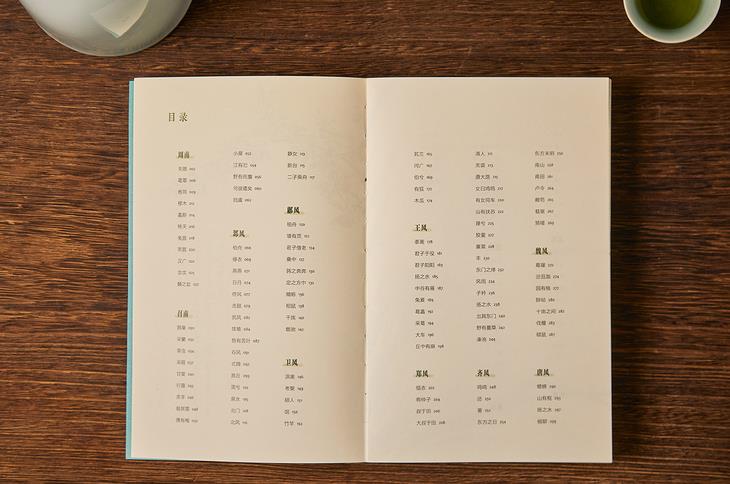 目录
周南
关雎
葛覃
卷耳
樛木
螽斯
桃夭
兔罝
芣苢
汉广
汝坟
麟之趾
召南
鹊巢
采蘩
草虫
采蘋
甘棠
行露
羔羊
殷其雷
摽有梅
小星 052
江有汜 054
野有死麕 056
何彼襛矣 060
驺虞 062
邶风
柏舟
绿衣
燕燕
日月
终风
击鼓
凯风
雄雉
匏有苦叶 087
谷风
式微
旄丘
简兮
泉水
北门
北风
静女
新台
二子乘舟 117
鄘风
柏舟
墙有茨
君子偕老 124
桑中
鹑之奔奔 130
定之方中 132
蝃蝀
相鼠
干旄
载驰
卫风
淇奥
考槃
硕人
氓
竹竿
芄兰 165
河广 167
伯兮 169
有狐 171
木瓜 174
王风
黍离 178
君子于役 181
君子阳阳 183
扬之水 185
中谷有蓷 187
兔爰
葛藟 192
采葛 194
大车 196
丘中有麻 198
郑风
缁衣 202
将仲子 204
叔于田 206
大叔于田 208
清人 211
羔裘
遵大路 215
女曰鸡鸣 217
有女同车 220
山有扶苏 222
萚兮 225
狡童 227
褰裳
丰
东门之墠 232
风雨 234
子衿
扬之水
出其东门 240
野有蔓草 242
溱洧 244
齐风
鸡鸣 248
还
著
东方之日 254
东方未明
南山
甫田
卢令
敝笱
载驱
猗嗟
魏风
葛屦
汾沮洳
园有桃
陟岵
十亩之间 282
伐檀
硕鼠 287
唐风
蟋蟀
山有枢
扬之水
椒聊